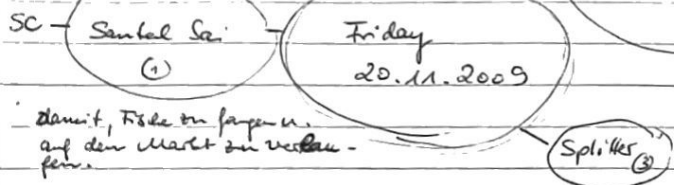 SC – Santel Sai Friday
① 20.11.2009
damit, Fische zu fangen u.
auf dem Markt zu verkau-
fen.
Splitter ③